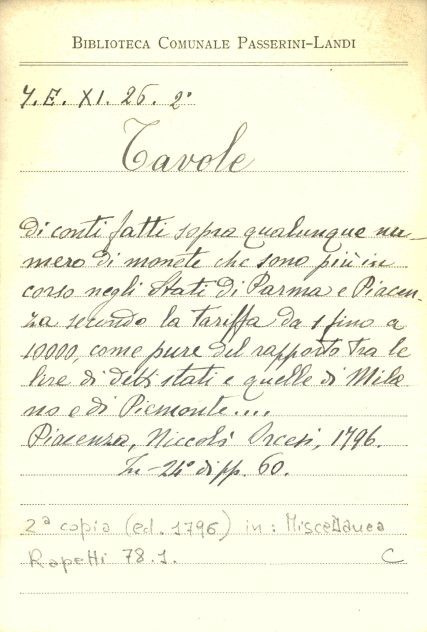 BIBLIOTECA COMUNALE PASSERINI-LANDI
Y.E. XI. 26. 2°
Tavole
di conti fatti sopra qualunque nu-
mero di monete che sono più in
corso negli Stati di Parma e Piacen-
za secondo la tariffa da 1 fino a
10000, come pure del rapporto tra le
lire di detti stati e quelle di Mila
no e di Piemonte....
Piacenza, Niccolò Orcesi, 1796.
In-24° di pp. 60.
2ª copia (ed. 1796) in: Miscellanea
Rapetti 78.1. C